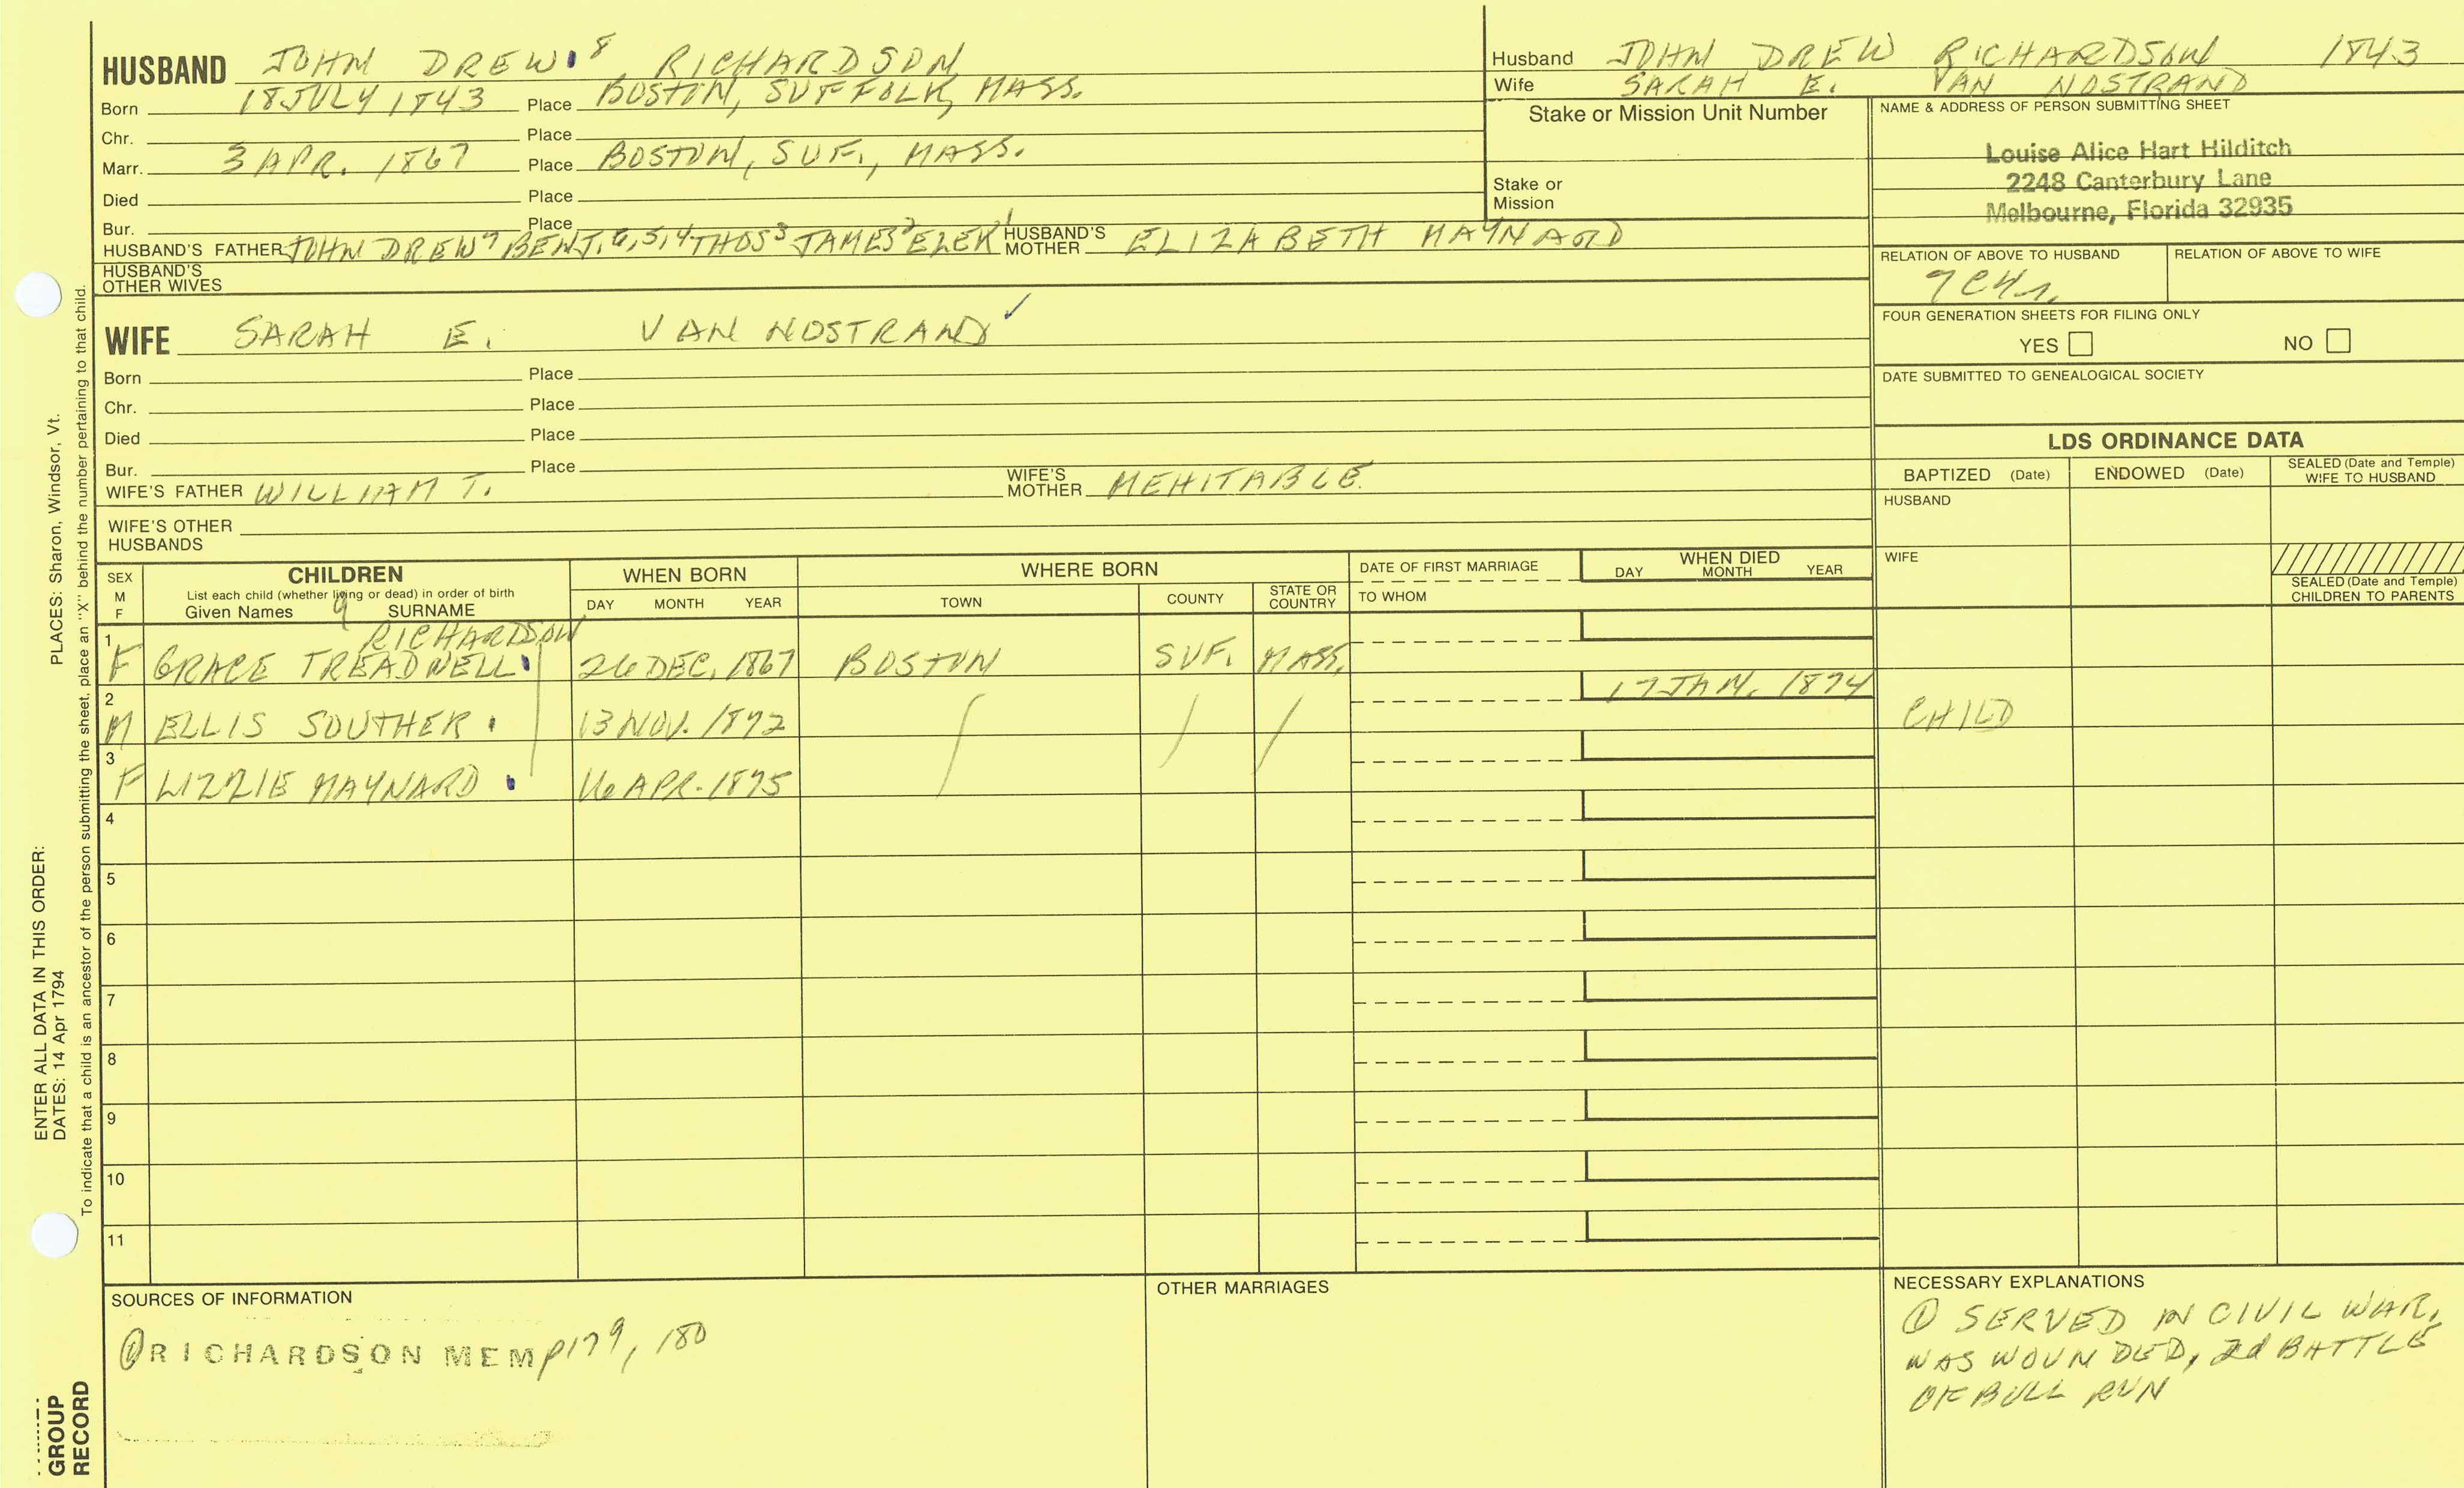 HUSBAND JOHN DREW 8 RICHARDSON
Born 18 JULY 1843 Place BOSTON, SUFFOLK, MASS.
Chr. Place
Marr. 3 APR. 1867 Place BOSTON, SUF., MASS.
Died Place
Bur. Place
HUSBAND'S FATHER JOHN DREW7 BENJ.6,5,4 THOS3 JAMES2 EZEK1 HUSBAND'S MOTHER ELIZABETH MAYNARD
HUSBAND'S OTHER WIVES
Husband JOHN DREW RICHARDSON 1843
Wife SARAH E. VAN NOSTRAND
Stake or Mission Unit Number
Stake or Mission
NAME & ADDRESS OF PERSON SUBMITTING SHEET
Louise Alice Hart Hilditch
2248 Canterbury Lane
Melbourne, Florida 32935
RELATION OF ABOVE TO HUSBAND RELATION OF ABOVE TO WIFE
FOUR GENERATION SHEETS FOR FILING ONLY
YES NO
DATE SUBMITTED TO GENEALOGICAL SOCIETY
WIFE SARAH E. VAN NOSTRAND
Born Place
Chr. Place
Died Place
Bur. Place
WIFE'S FATHER WILLIAM T. WIFE'S MOTHER MEHITABLE
WIFE'S OTHER HUSBANDS
LDS ORDINANCE DATA
BAPTIZED (Date) ENDOWED (Date) SEALED (Date and Temple) WIFE TO HUSBAND
HUSBAND
WIFE
SEALED (Date and Temple) CHILDREN TO PARENTS
SEX M F CHILDREN List each child (whether living or dead) in order of birth Given Names 9 SURNAME
WHEN BORN DAY MONTH YEAR
WHERE BORN TOWN COUNTY STATE OR COUNTRY
DATE OF FIRST MARRIAGE TO WHOM
WHEN DIED DAY MONTH YEAR
1 F GRACE TREADWELL RICHARDSON 26 DEC. 1867 BOSTON SUF. MASS.
2 M ELLIS SOUTHER 13 NOV. 1872 17 JAN. 1874 CHILD
3 F LIZZIE MAYNARD 16 APR. 1875
4
5
6
7
8
9
10
11
SOURCES OF INFORMATION
① RICHARDSON MEM p179, 180
OTHER MARRIAGES
NECESSARY EXPLANATIONS
① SERVED IN CIVIL WAR,
WAS WOUNDED, 2d BATTLE
OF BULL RUN
PLACES: Sharon, Windsor, Vt.
ENTER ALL DATA IN THIS ORDER:
DATES: 14 Apr 1794
To indicate that a child is an ancestor of the person submitting the sheet, place an "X" behind the number pertaining to that child.
GROUP
RECORD